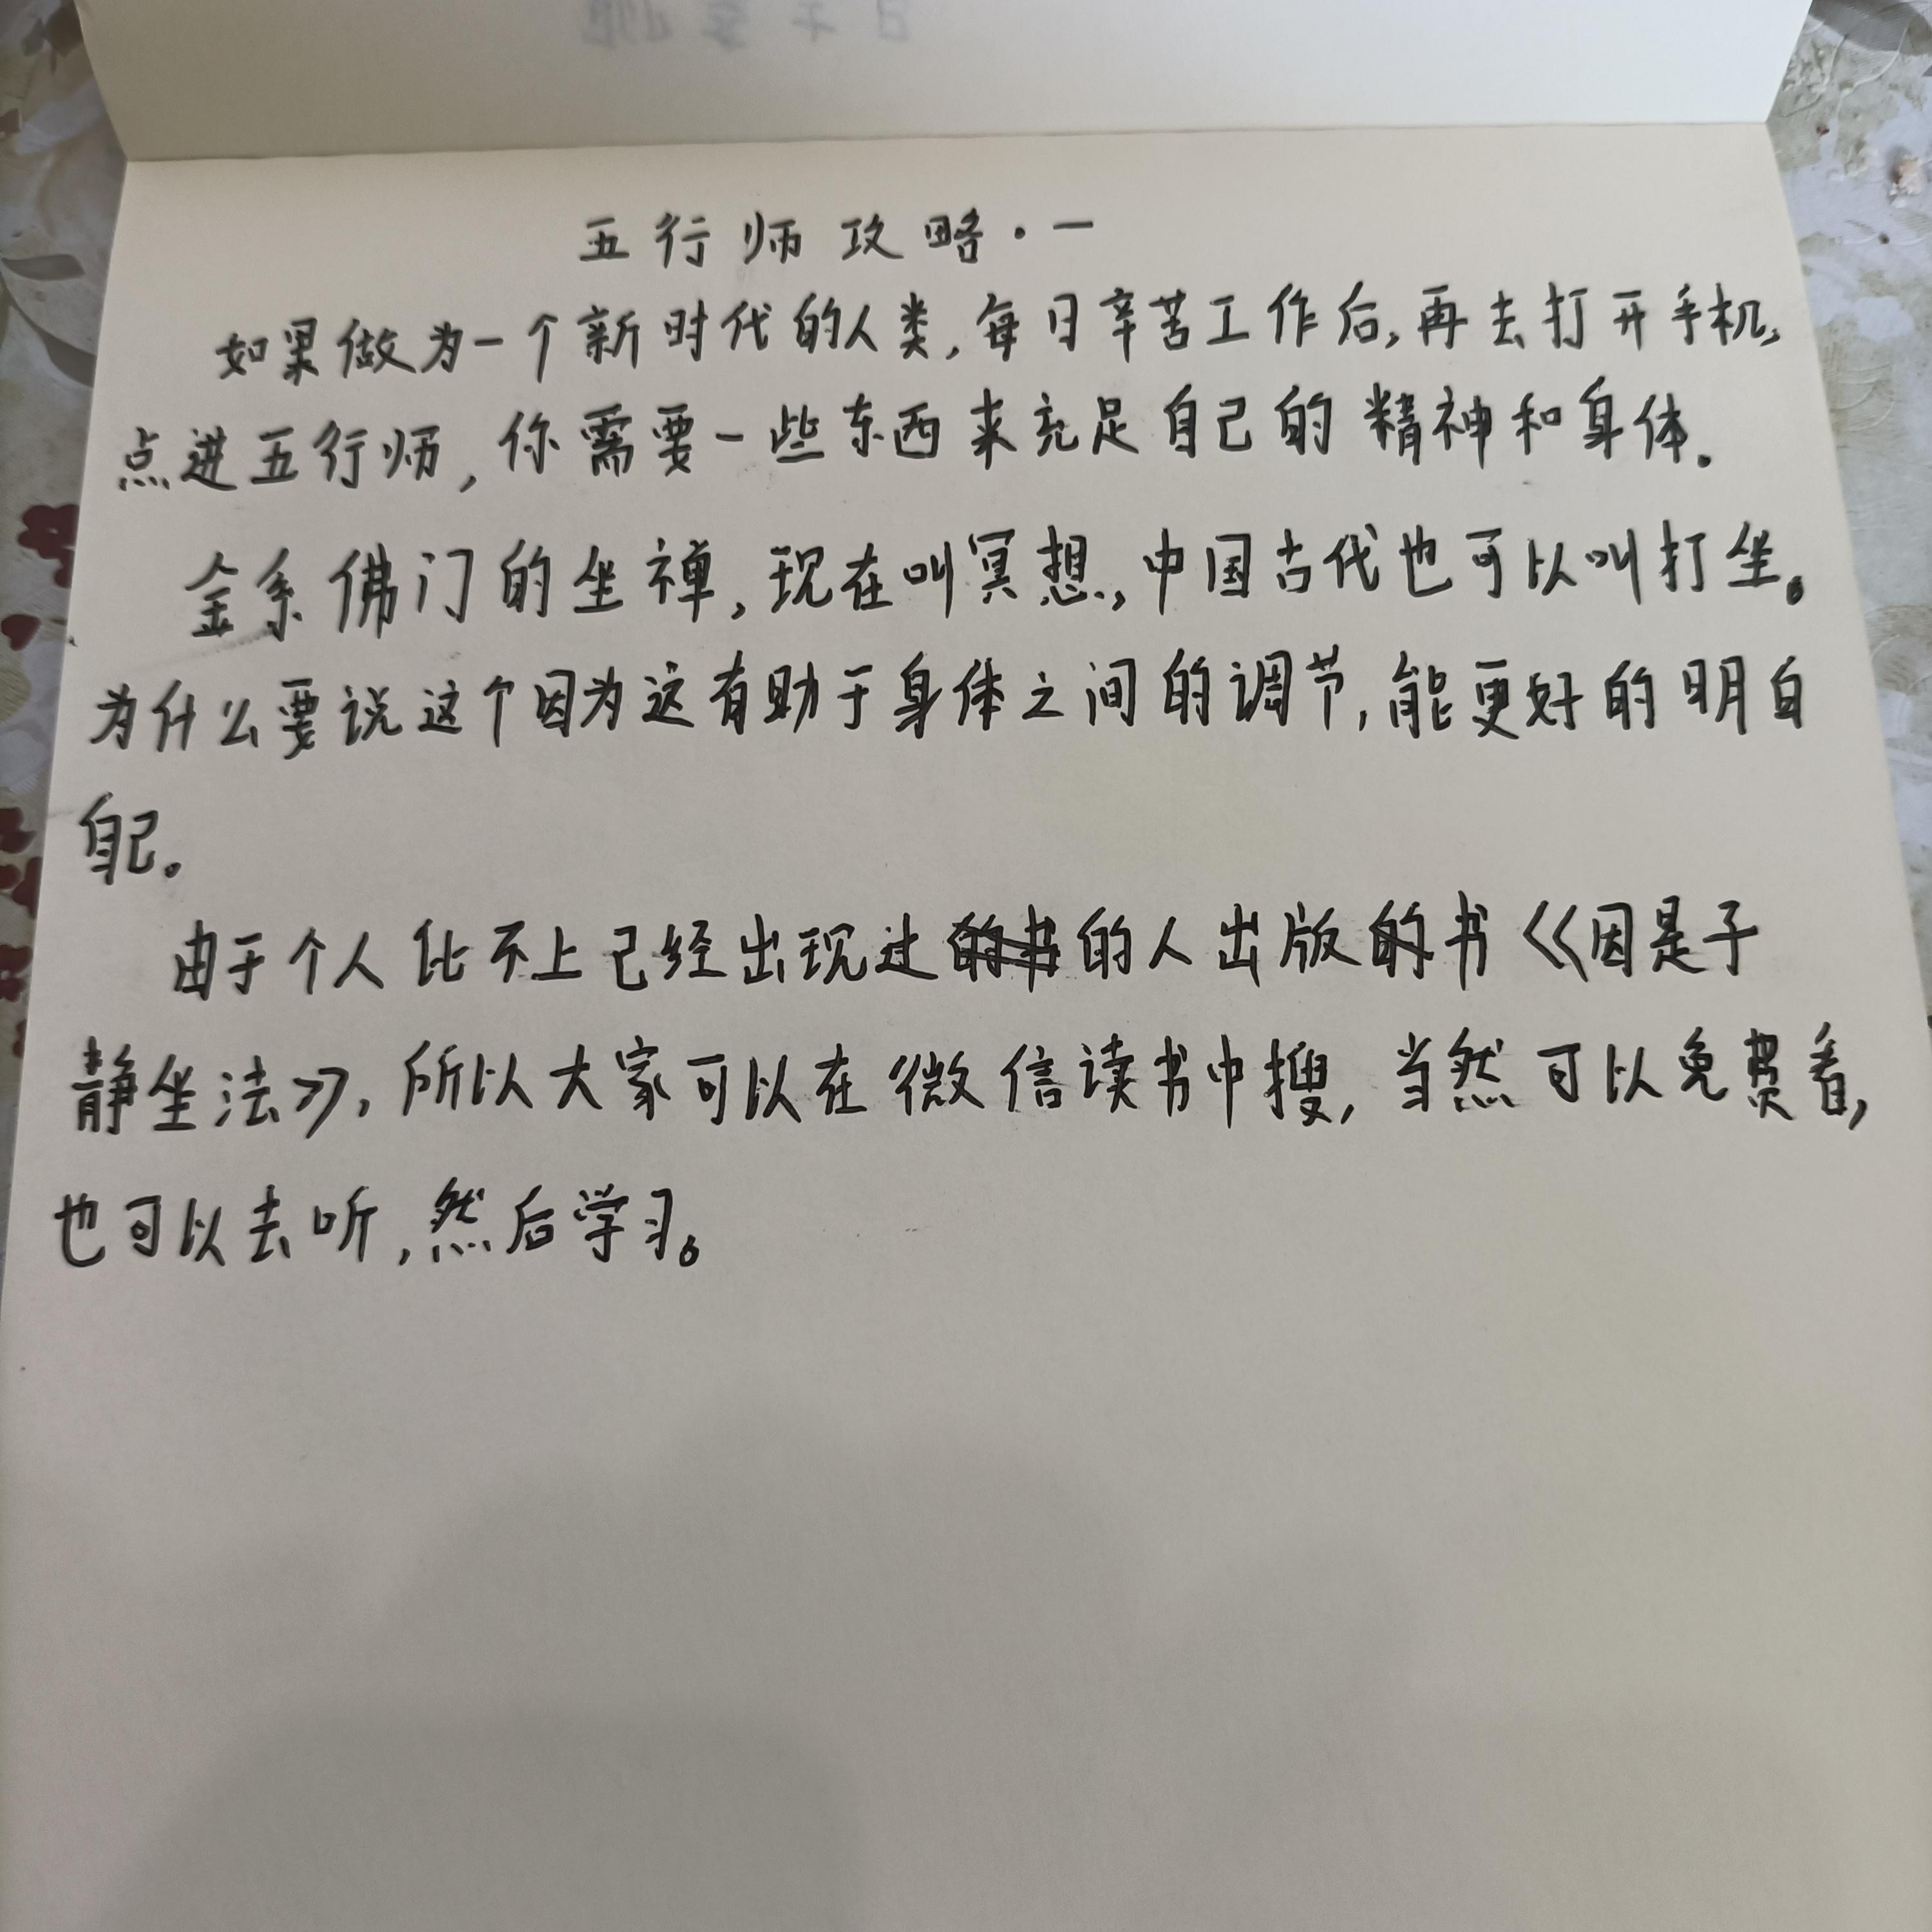 五行师攻略·一
如果做为一个新时代的人类,每日辛苦工作后,再去打开手机,
点进五行师,你需要一些东西来充足自己的精神和身体.
金系佛门的坐禅,现在叫冥想,中国古代也可以叫打坐。
为什么要说这个因为这有助于身体之间的调节,能更好的明白
自己。
由于个人比不上已经出现过的人出版的书《因是子
静坐法》,所以大家可以在微信读书中搜,当然可以免费看,
也可以去听,然后学习。